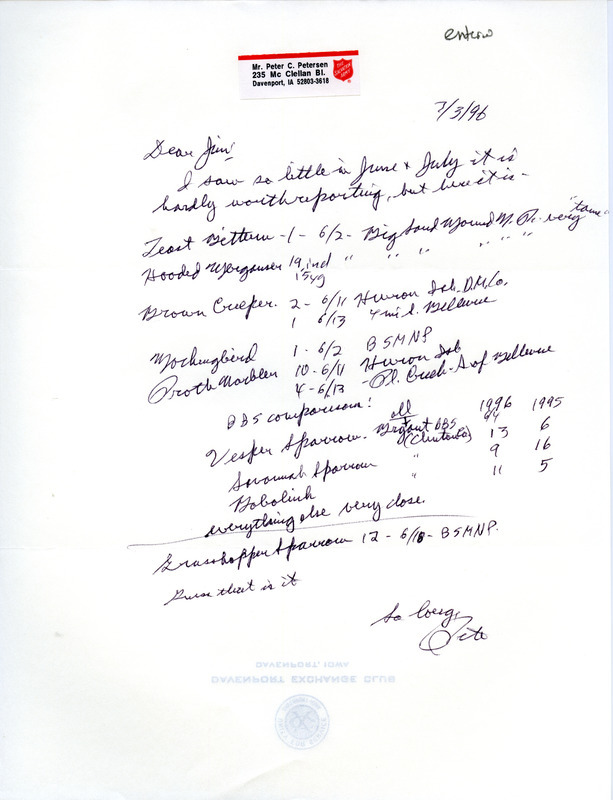 enter
Mr. Peter C. Petersen
235 Mc Clellan Bl.
Davenport, IA 52803-3618
THE SALVATION ARMY
7/3/96
Dear Jim:
I saw so little in June & July it is
hardly worth reporting, but here it is -
Least Bittern - 1 - 6/2 - Big Sand Mound N. Pr. - very "tame"
Hooded Merganser 19 ind " " " " " "
1 5 yg
Brown Creeper. 2 - 6/11 Huron Isl. D.M.Co.
1 6/13 4 mi S. Bellevue
Mockingbird 1 - 6/2 BSMNP
Proth Warbler 10 - 6/11 Huron Isl
4 - 6/13 - Pl. Creek - S of Bellevue
BBS comparison: all 1996 1995
Vesper Sparrow. BBS 94 6
(Clinton Co) 13
Savannah Sparrow " 9 16
Bobolink " 11 5
everything else very close.
Grasshopper Sparrow 12 - 6/18 - BSMNP.
Guess that is it
So long,
Pete
DAVENPORT EXCHANGE CLUB
DAVENPORT, IOWA